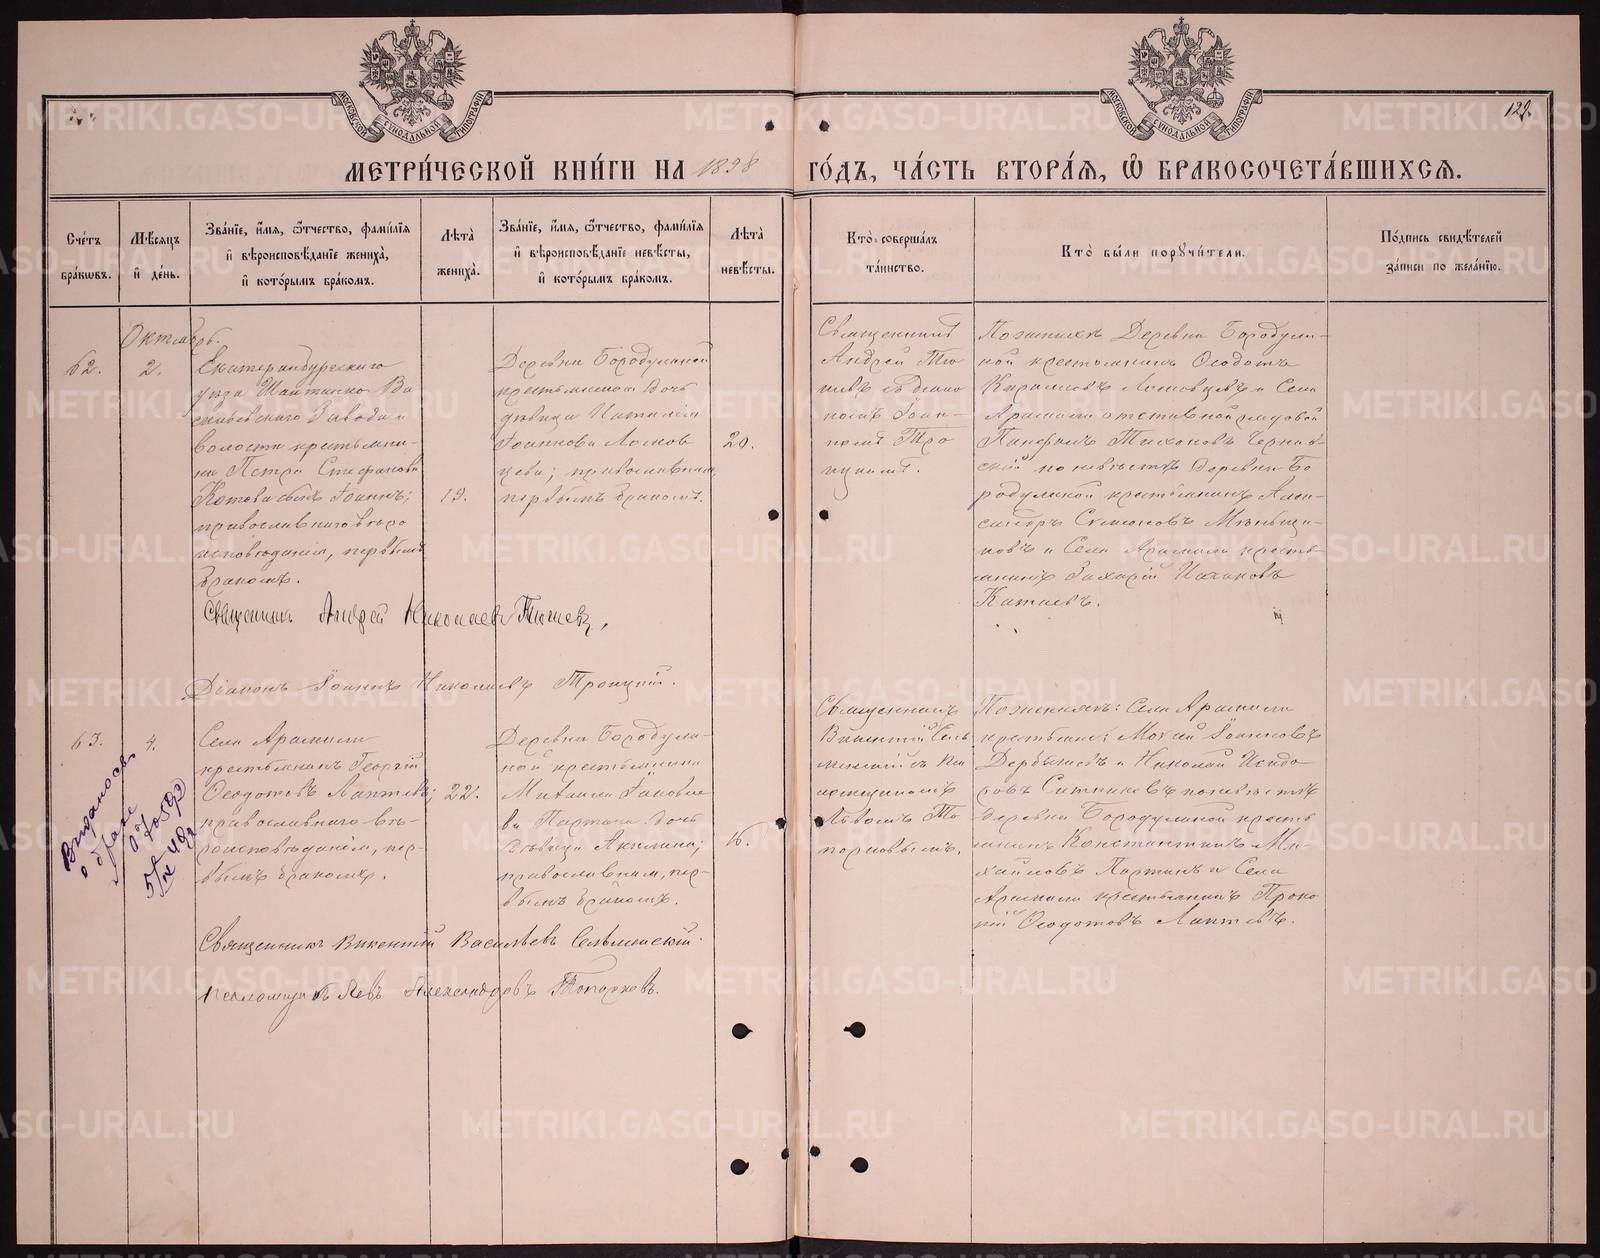 МОСКОВСКОЙ СѴНОДАЛЬНОЙ ТИПОГРАФІИ
МОСКОВСКОЙ СѴНОДАЛЬНОЙ ТИПОГРАФІИ
129.
МЕТРИ́ЧЕСКОЙ КНИ́ГИ НА 1898 ГО́ДЪ, ЧА́СТЬ ВТОРА́Я, Ѽ БРАКОСОЧЕТА́ВШИХСЯ.
Сче́тъ бра́кѡвъ.
Мѣ́сяцъ и҆ де́нь.
Зва́нїе, и҆́мя, ѻ҆́тчество, фами́лїя и҆ вѣроисповѣ́данїе жениха̀, и҆ кото́рымъ бра́комъ.
Лѣ́та жениха̀.
Зва́нїе, и҆́мя, ѻ҆́тчество, фами́лїя и҆ вѣроисповѣ́данїе невѣ́сты, и҆ кото́рымъ бра́комъ.
Лѣ́та невѣ́сты.
Кто̀ соверша́лъ та́инство.
Кто̀ бы́ли порꙋчи́тели.
По́дпись свидѣ́телей за́писи по жела́нїю.
Октябрь.
62.
2.
Екатеринбургскаго
уѣзда Шайтанко Ва
сильевскаго Завода и
волости крестьяни-
на Петра Стефанова
Котова сынъ Іоаннъ;
православнаго вѣро
исповѣданія, первымъ
бракомъ.
19.
Деревни Бородулиной
крестьянская дочь
дѣвица Наталія
Іоаннова Ломов
цева; православная,
первымъ бракомъ.
20.
Священникъ
Андрей Тю
шевъ съ діако
номъ Іоан-
номъ Тро
ицкимъ.
По женихѣ Деревни Бородули-
ной крестьянинъ Ѳеодотъ
Кирилловъ Ломовцевъ и Села
Арамили отставной рядовой
Панфилъ Тихоновъ Черняв-
скій по невѣстѣ Деревни Бо
родулиной крестьянинъ Алек-
сандръ Симеоновъ Меньщи-
ковъ и Села Арамили кресть-
янинъ Захарій Исааковъ
Катаевъ.
Священникъ Андрей Николаевъ Тюшевъ,
Діаконъ Іоаннъ Николаевъ Троицкій.
63.
4.
Села Арамили
крестьянинъ Георгій
Ѳеодотовъ Лаптевъ;
православнаго вѣ-
роисповѣданія, пер-
вымъ бракомъ.
22.
Деревни Бородули-
ной крестьянина
Михаила Іаковле
ва Паркина дочь
дѣвица Акилина;
православная, пер-
вымъ бракомъ.
16.
Священникъ
Викентій Сель
менскій съ пса
ломщикомъ
Львомъ То
порковымъ.
По женихѣ: Села Арамили
крестьяне: Моисей Іоанновъ
Дербышевъ и Николай Исидо
ровъ Ситниковъ по невѣстѣ
деревни Бородулиной кресть
янинъ Константинъ Ми-
хайловъ Паркинъ и Села
Арамили крестьянинъ Проко
пій Ѳеодотовъ Лаптевъ.
Выдано св.
о браке
Священникъ Викентій Васильевъ Сельменскій.
псаломщикъ Левъ Александровъ Топорковъ.
METRIKI.GASO-URAL.RU